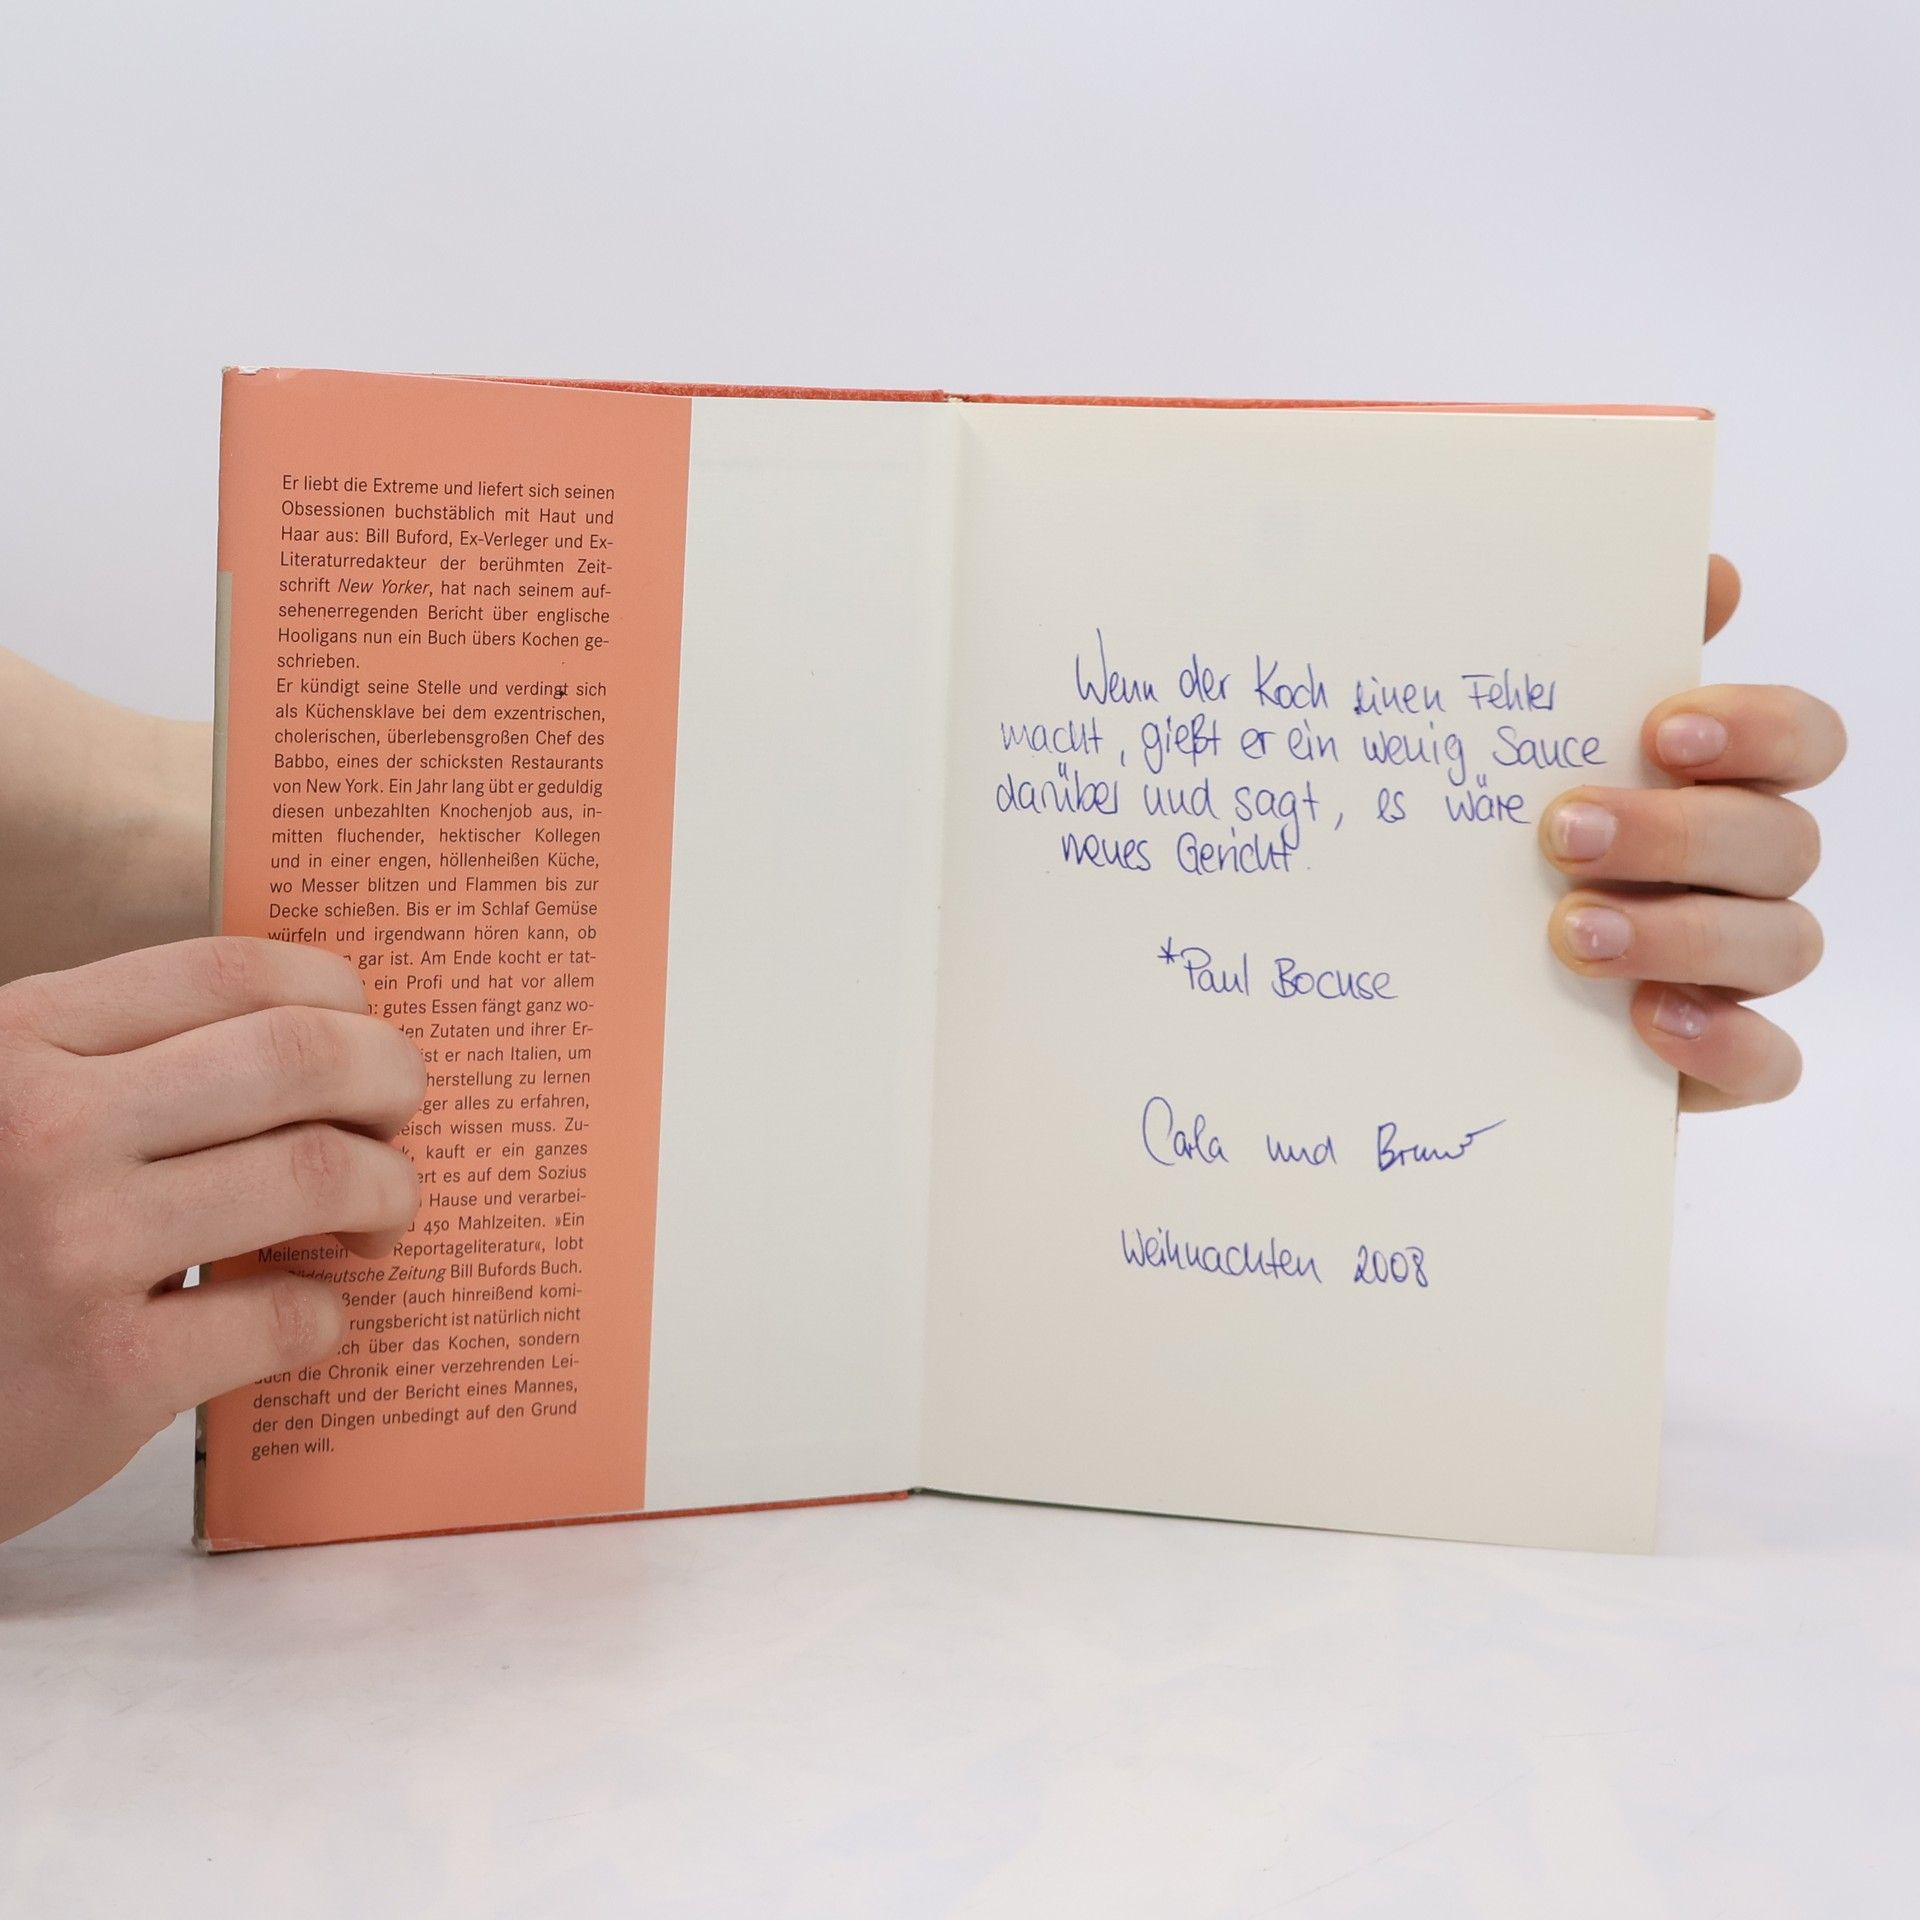 Er liebt die Extreme und liefert sich seinen
Obsessionen buchstäblich mit Haut und
Haar aus: Bill Buford, Ex-Verleger und Ex-
Literaturredakteur der berühmten Zeit-
schrift New Yorker, hat nach seinem auf-
sehenerregenden Bericht über englische
Hooligans nun ein Buch übers Kochen ge-
schrieben.
Er kündigt seine Stelle und verdingt sich
als Küchensklave bei dem exzentrischen,
cholerischen, überlebensgroßen Chef des
Babbo, eines der schicksten Restaurants
von New York. Ein Jahr lang übt er geduldig
diesen unbezahlten Knochenjob aus, in-
mitten fluchender, hektischer Kollegen
und in einer engen, höllenheißen Küche,
wo Messer blitzen und Flammen bis zur
Decke schießen. Bis er im Schlaf Gemüse
würfeln und irgendwann hören kann, ob
gar ist. Am Ende kocht er tat-
ein Profi und hat vor allem
gutes Essen fängt ganz wo-
den Zutaten und ihrer Er-
ist er nach Italien, um
herstellung zu lernen
alles zu erfahren,
wissen muss. Zu-
kauft er ein ganzes
es auf dem Sozius
Hause und verarbei-
450 Mahlzeiten. »Ein
Meilenstein Reportageliteratur«, lobt
Süddeutsche Zeitung Bill Bufords Buch.
(auch hinreißend komi-
ist natürlich nicht
über das Kochen, sondern
auch die Chronik einer verzehrenden Lei-
denschaft und der Bericht eines Mannes,
der den Dingen unbedingt auf den Grund
gehen will.
Wenn der Koch einen Fehler
macht, gießt er ein wenig Sauce
darüber und sagt, es wäre
neues Gericht.
*Paul Bocuse
Carla und Bruno
Weihnachten 2008